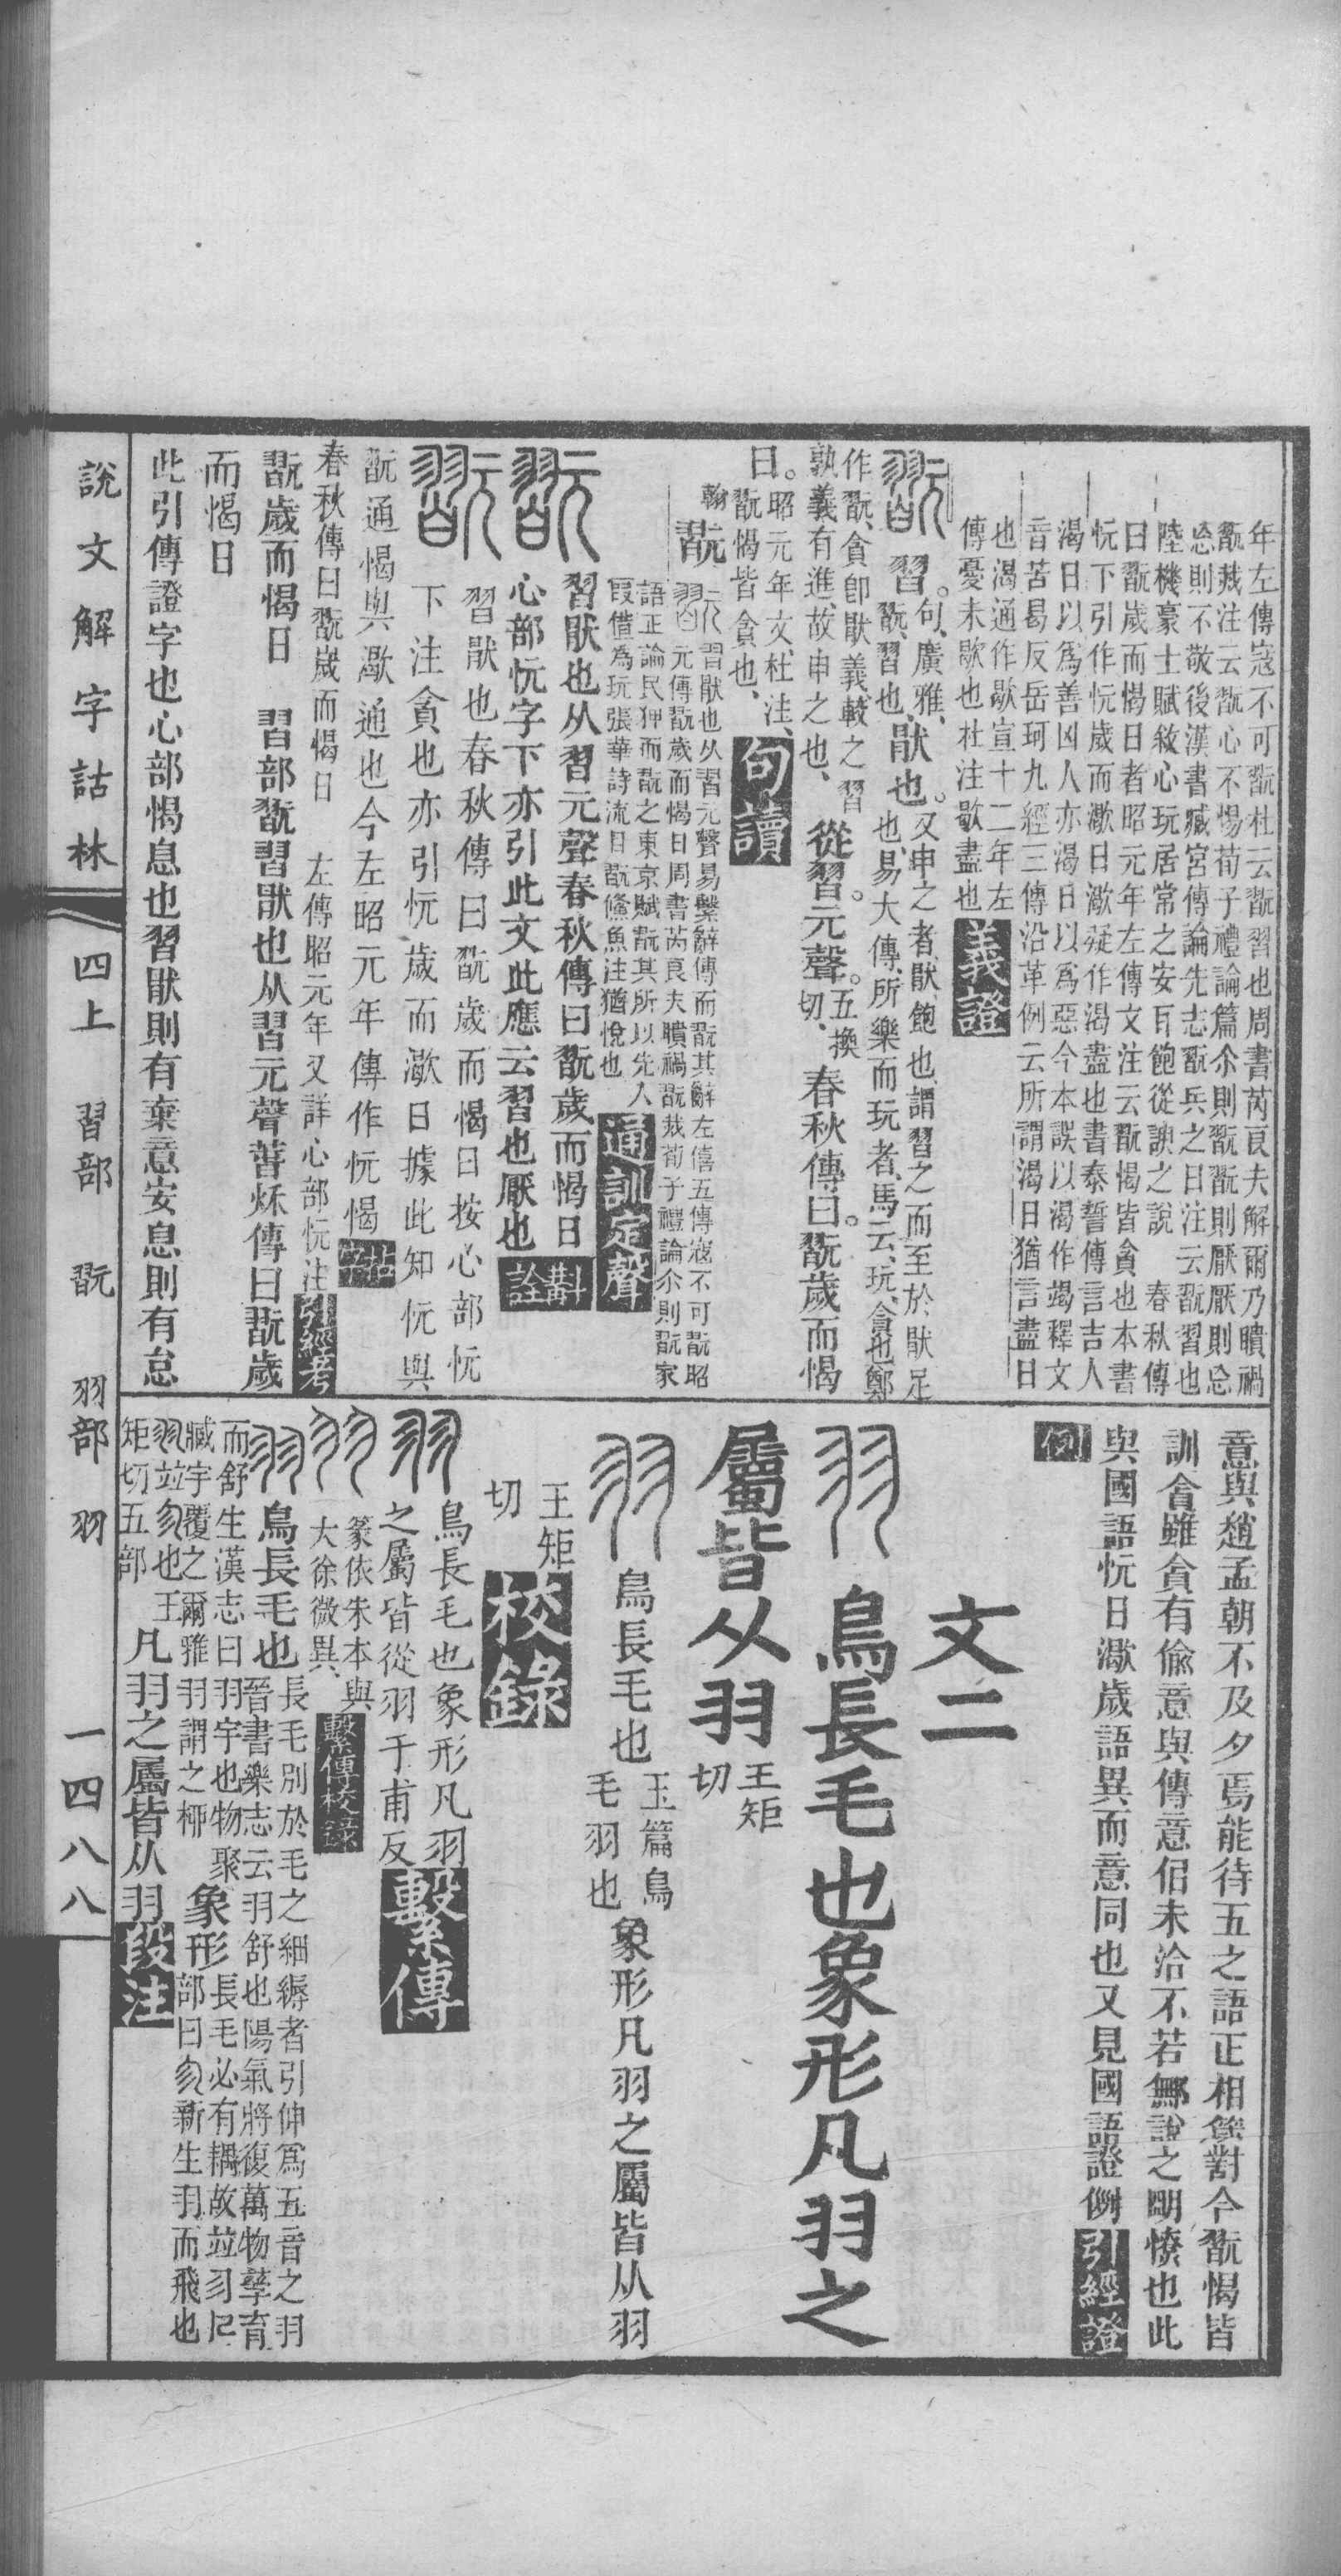 年左傳寇不可翫杜云翫習也周書芮良夫解爾乃聵禍
翫烖注云翫心不惕荀子禮論篇尒則翫翫則厭厭則忩
忩則不敬後漢書臧宮傳論先志翫兵之日注云翫習也
陸機豪士賦敘心玩居常之安耳飽從諛之說　春秋傳
曰翫歲而愒日者昭元年左傳文注云翫愒皆貪也本書
忨下引作忨歲而㵣日㵣疑作渴盡也書泰誓傳言吉人
渴日以爲善凶人亦渴日以爲惡今本誤以渴作竭釋文
音苦曷反岳珂九經三傳沿革例云所謂渴日猶言盡日
也渴通作歇宣十二年左
傳憂未歇也杜注歇盡也義證
習。句、廣雅、翫、習也、猒也。又申之者、猒、飽也、謂習之而至於猒足也、易大傳、所樂而玩者、馬云、玩、貪也、鄭
作翫、貪卽猒義、較之習
孰義有進、故申之也、從習。元聲。五換切、春秋傳曰。翫歲而愒
日。昭元年文、杜注、翫愒皆貪也、句讀
翰翫習猒也从習元聲易繫辭傳而翫其辭左僖五傳寇不可翫昭
元傳翫歲而愒日周書芮良夫聵禍翫烖荀子禮論尒則翫家
語正論民狎而翫之東京賦翫其所以先入
叚借爲玩張華詩流目翫鯈魚注猶悅也通訓定聲
習猒也从習元聲春秋傳曰翫歲而愒日
心部忨字下亦引此文此應云習也厭也斠詮
習猒也春秋傳曰翫歲而愒日按心部忨
下注貪也亦引忨歲而㵣日據此知忨與
翫通愒與㵣通也今左昭元年傳作忨愒
春秋傳曰翫歲而愒日　左傳昭元年又詳心部忨注引經考
翫歲而愒日　習部翫習猒也从習元聲萅秌傳曰翫歲
而愒日
此引傳證字也心部愒息也習猒則有棄意安息則有怠
意與趙孟朝不及夕焉能待五之語正相鍼對今翫愒皆
訓貪雖貪有偸意與傳意侣未洽不若鄦說之明憭也此
與國語忨日㵣歲語異而意同也又見國語證例引經證
例
文二
羽鳥長毛也象形凡羽之
屬皆从羽王矩切
羽鳥長毛也玉篇鳥毛羽也象形凡羽之屬皆从羽
王矩切校錄
羽鳥長毛也象形凡羽
之屬皆從羽于甫反繫傳
羽篆依朱本與
大徐微異、繫傳校錄
羽鳥長毛也長毛別於毛之細縟者引伸爲五音之羽
晉書樂志云羽舒也陽氣將復萬物孳育
而舒生漢志曰羽宇也物聚
臧宇覆之爾雅羽謂之栁象形長毛必有耦故竝𠃧𠃨
部曰㐱新生羽而飛也
羽竝㐱也王
矩切五部凡羽之屬皆从羽段注
說文解字詁林　四上　習部　翫　羽部　羽　一四八八